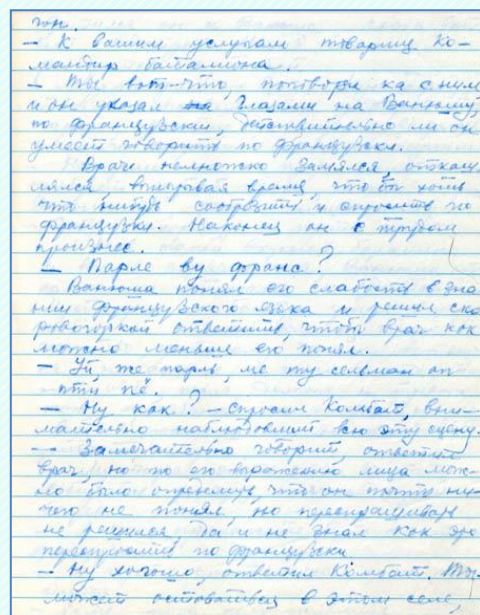 гон.
— К вашим услугам товарищ Ко-
мандир баталиона.
— Ты вот-что, поговори ка с ним
и он указал на глазами на Ванюшу,
по французски, действительно ли он
умеет говорить по французски.
Врач немножко замялся, откаш
лялся, выигрывая время, что бы хоть
что нибудь сообразить и спросить по
французки. Наконец он с трудом
произнес.
— Парле ву франсе?
Ванюша понял его слабость в зна
нии французского языка и решил ско
роговоркой ответить, чтобы врач как
можно меньше его понял.
— Уй, же парль, ме ту сельман ап
пти пё.
— Ну как? — спросил Комбат, вни-
мательно наблюдавший всю эту сцену.
— Замечательно говорит, ответил
врач, но по его выражению лица мож-
но было определить, что он почти ни-
чего не понял, но переспрашивать
не решился, да и не знал как это
переспросить по французски
— Ну хорошо, ответил Комбат. Ты
можешь оставаться в этом селе